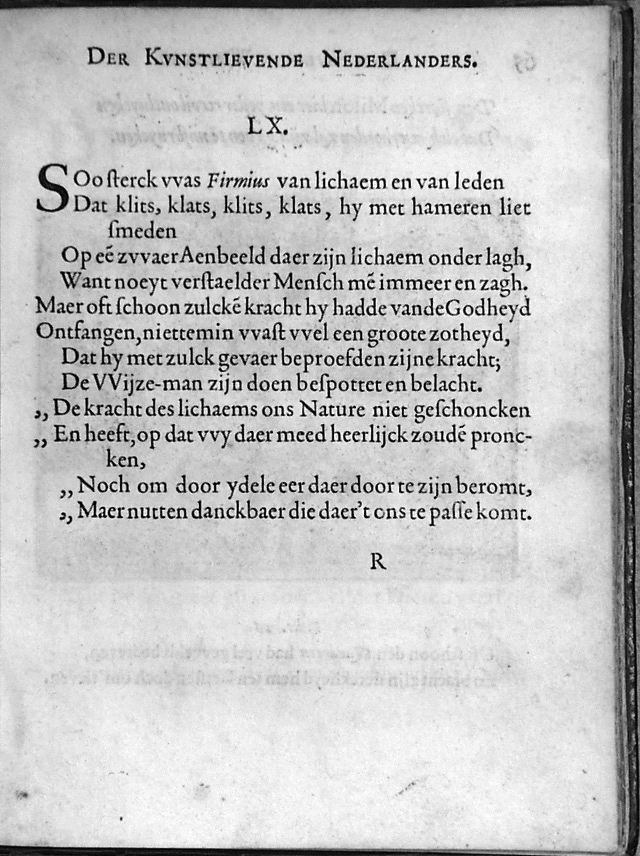 DER KVNSTLIEVENDE NEDERLANDERS.
LX.
SOo ſterck vvas Firmius van lichaem en van leden
Dat klits, klats, klits, klats, hy met hameren liet
ſmeden
Op eẽ zvvaer Aenbeeld daer zijn lichaem onder lagh,
Want noeyt verſtaelder Menſch mẽ immeer en zagh.
Maer oft ſchoon zulckẽ kracht hy hadde vande Godheyd
Ontfangen, niettemin vvaſt vvel een groote zotheyd,
Dat hy met zulck gevaer beproefden zijne kracht;
De VVijze-man zijn doen beſpottet en belacht.
,, De kracht des lichaems ons Nature niet geſchoncken
,, En heeft, op dat vvy daer meed heerlijck zoudẽ pronc-
ken,
,, Noch om door ydele eer daer door te zijn beromt,
,, Maer nutten danckbaer die daer't ons te paſſe komt.
R